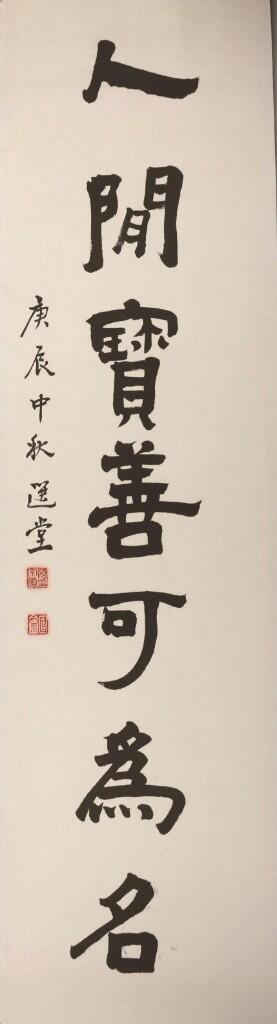 人閒寶善可為名
庚辰中秋 選堂